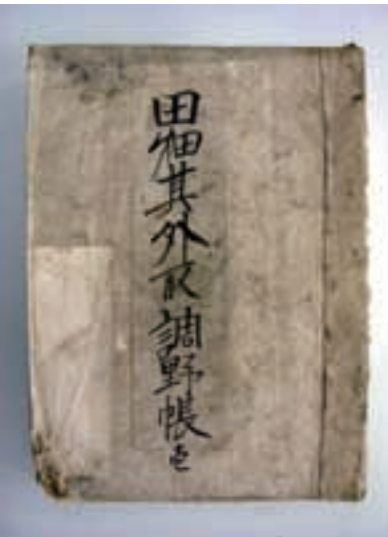 田畑其外取調野帳壱